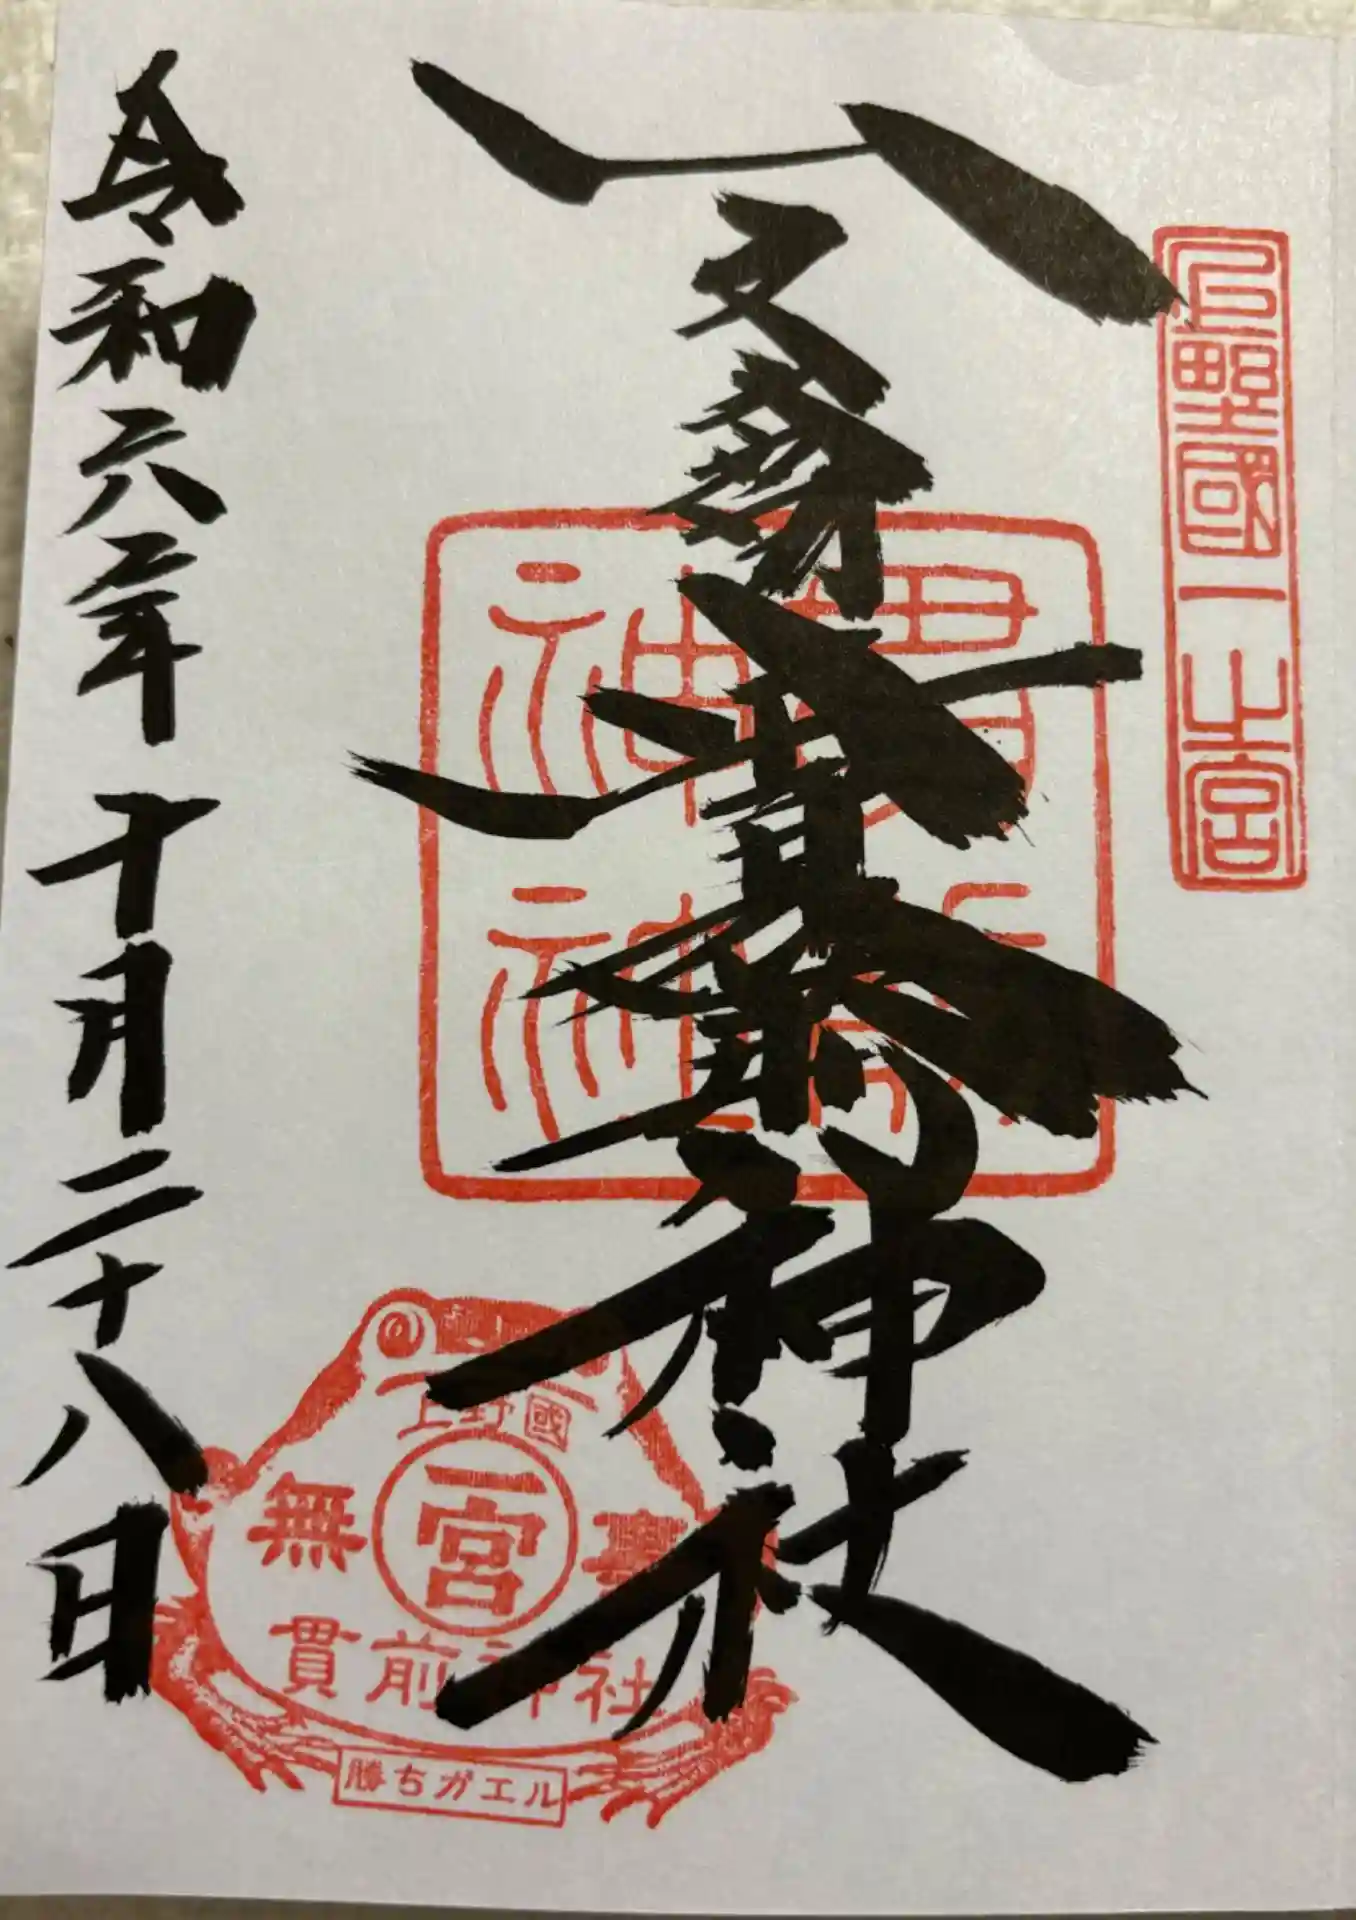 上野國一之宮
神社
貫前神社
令和六年十月二十八日
上野國
一宮
無事
貫前神社
勝ちガエル